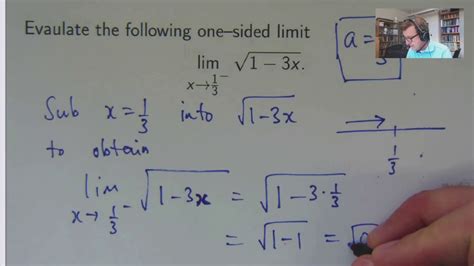 Evaulate the following one–sided limit
lim √(1 − 3x).
x→1/3⁻
a =
3
Sub x = 1/3 into √(1−3x)
to obtain
lim √(1−3x) = √(1−3·1/3)
x→1/3⁻
1/3
= √(1−1) = √0